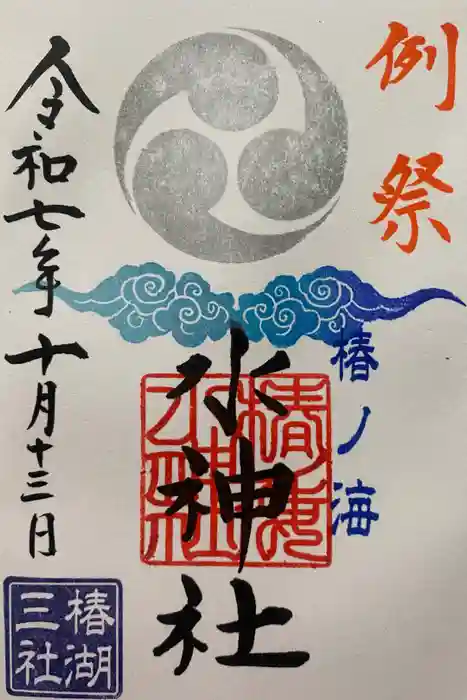 例祭
椿ノ海
水神社
椿海
水神社
令和七年十月十三日
椿湖
三社